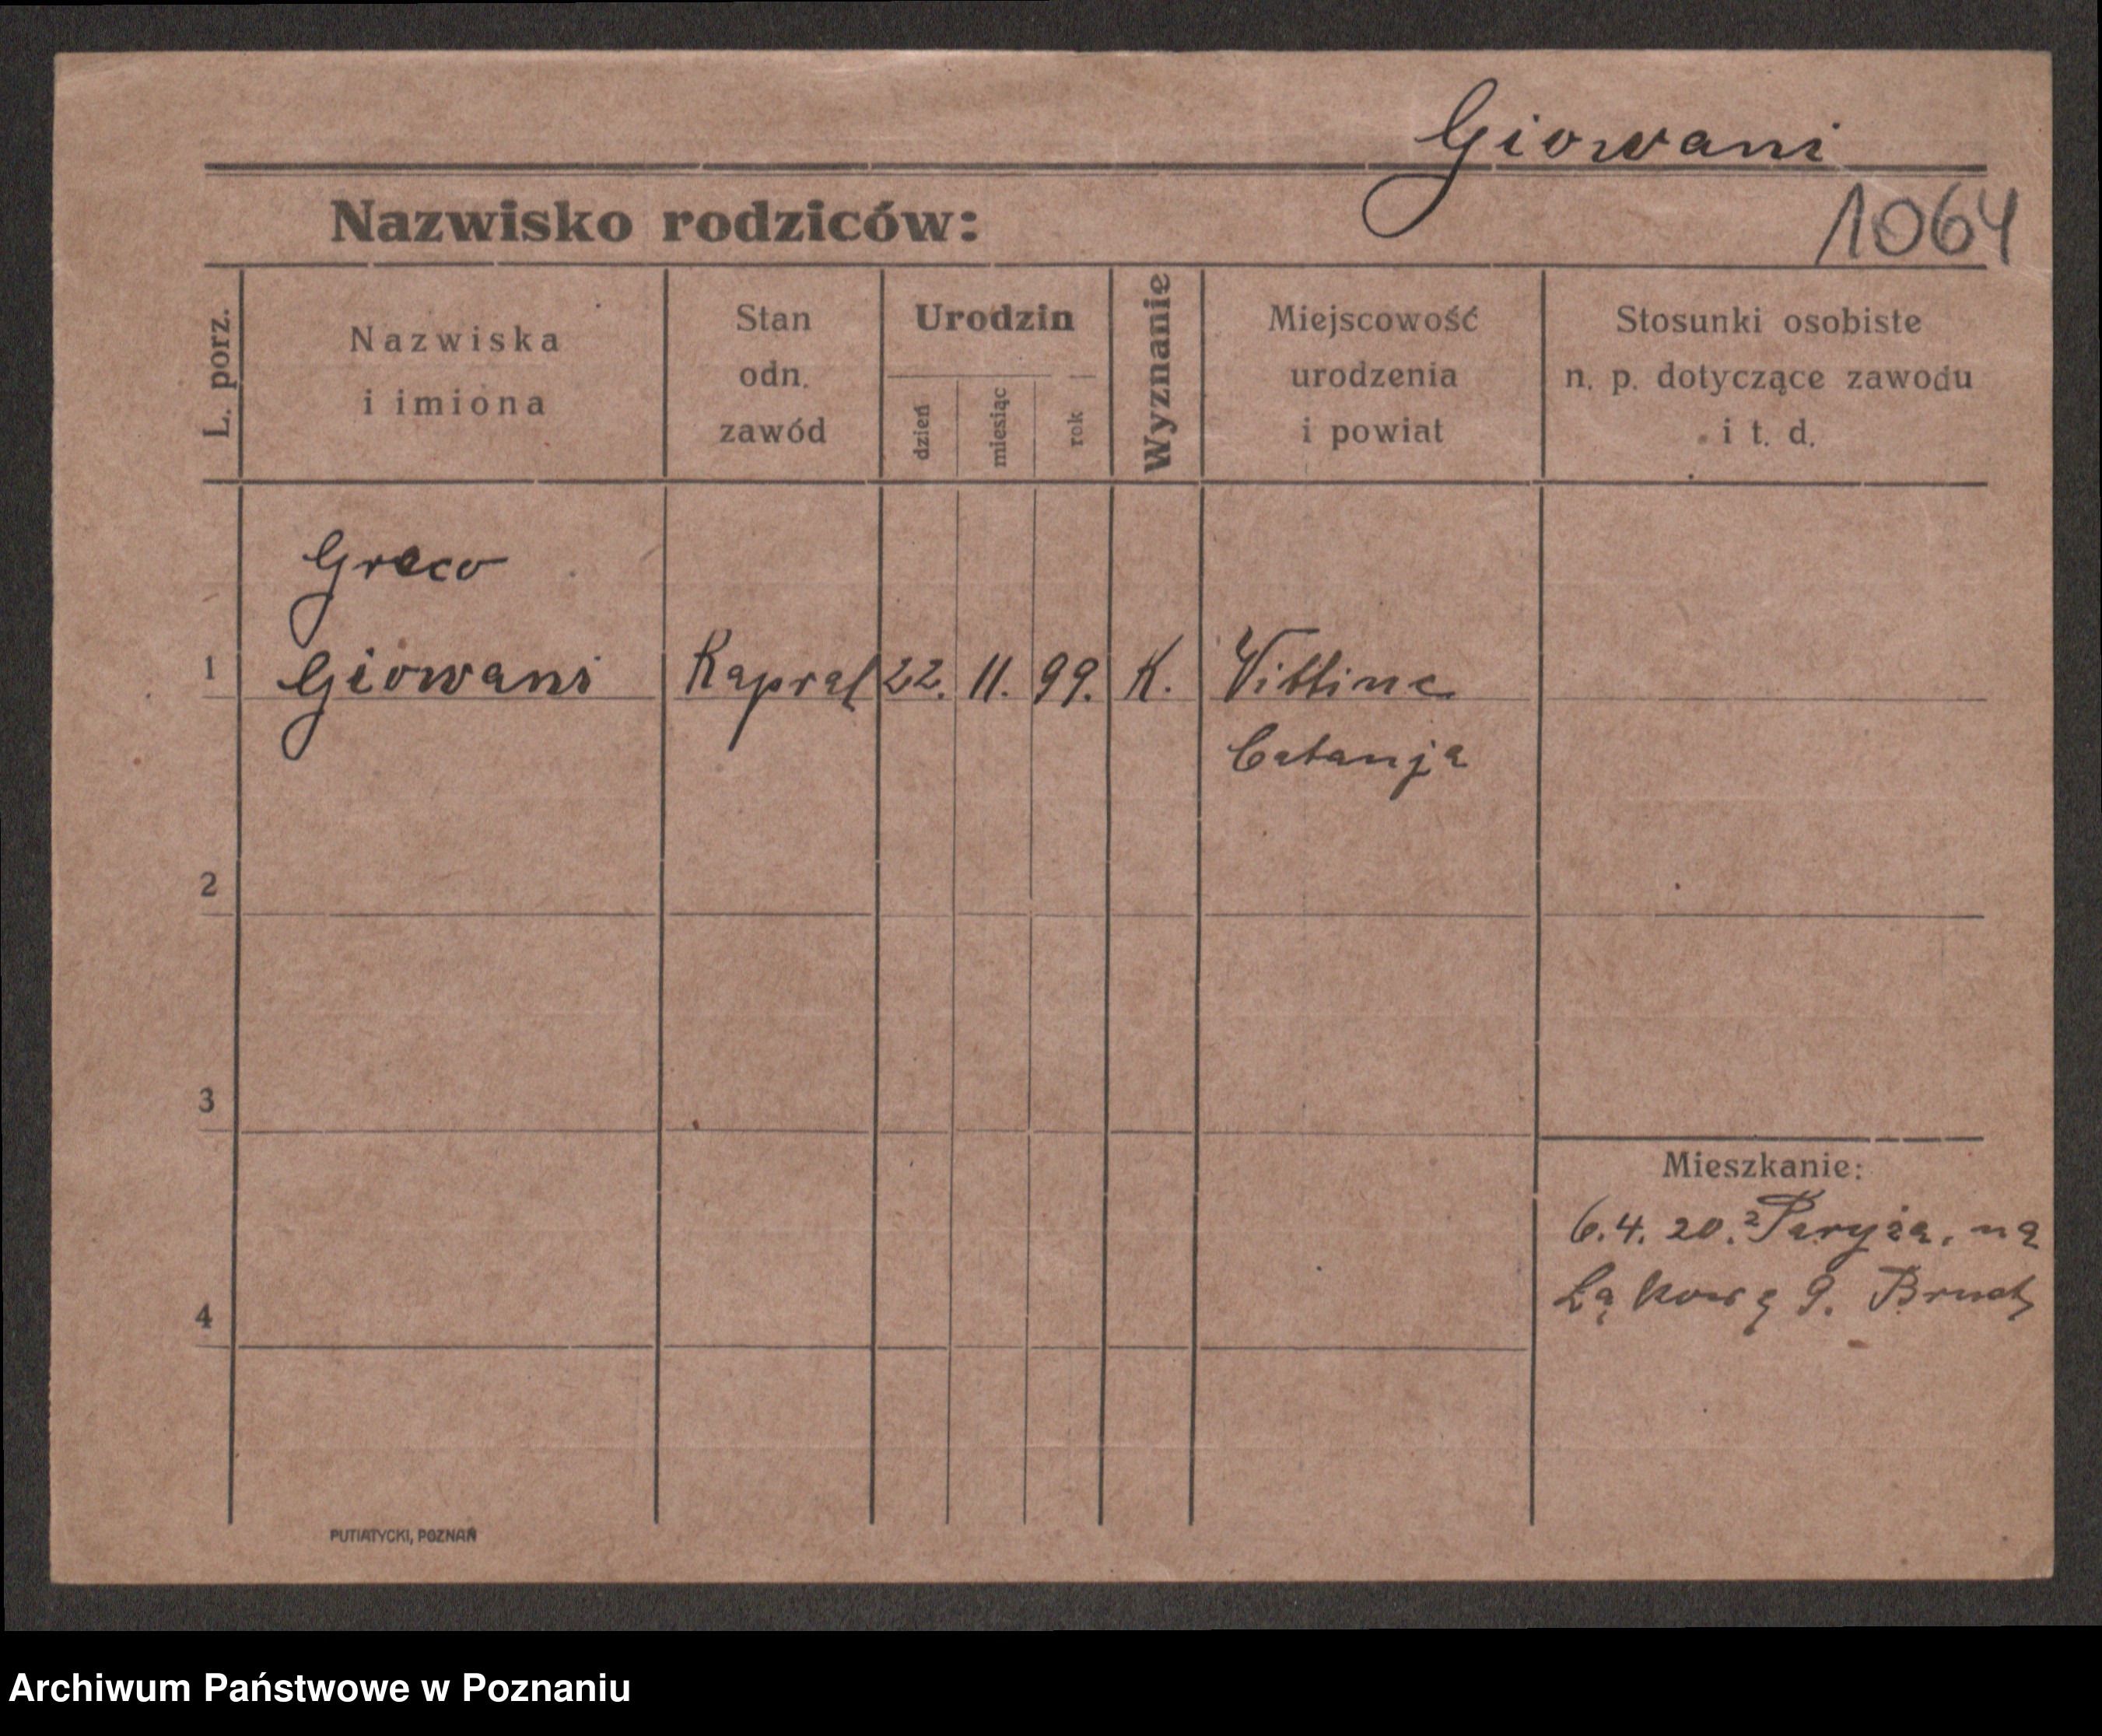 Giowani
Nazwisko rodziców:
1064
L. porz.
Nazwiska
i imiona
Stan
odn.
zawód
Urodzin
dzień
miesiąc
rok
Wyznanie
Miejscowość
urodzenia
i powiat
Stosunki osobiste
n. p. dotyczące zawodu
i t. d.
Greco
1 Giowani Kapral 22. 11. 99. K.
Catanja
2
3
4
Mieszkanie:
6.4.20. z Paryża, na
Łąkową 9.
PUTIATYCKI, POZNAŃ
Archiwum Państwowe w Poznaniu